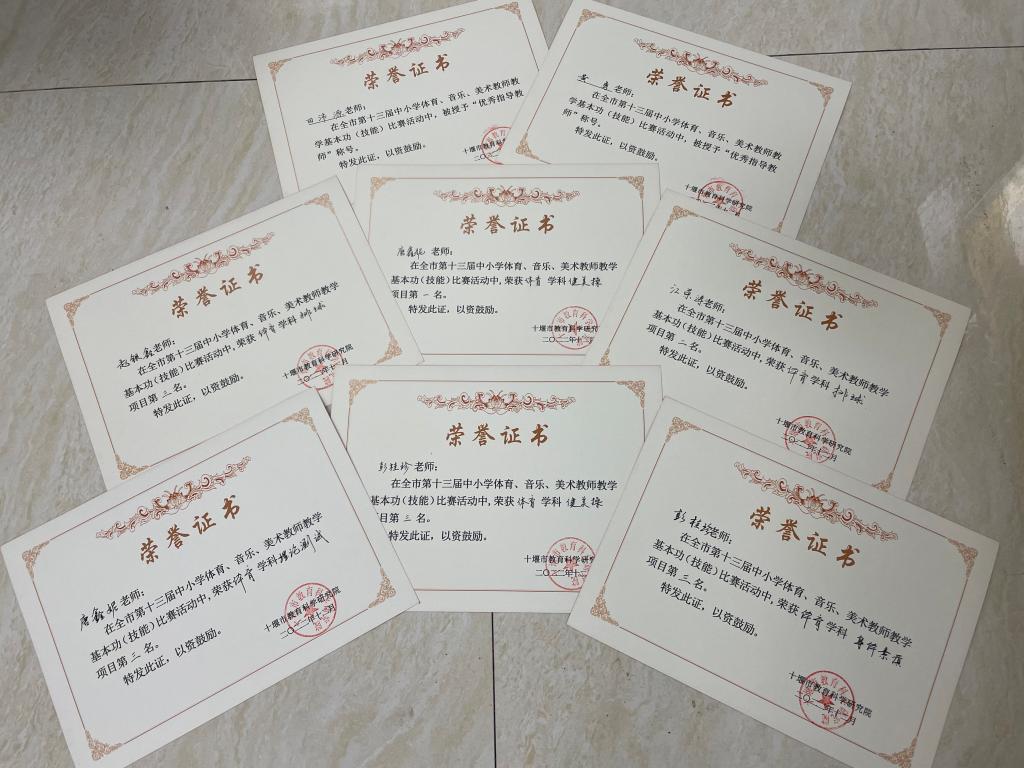 荣誉证书
老师：
在全市第十三届中小学体育、音乐、美术教师教
学基本功（技能）比赛活动中，被授予“优秀指导教
师”称号。
特发此证，以资鼓励。
荣誉证书
老师：
在全市第十三届中小学体育、音乐、美术教师教
学基本功（技能）比赛活动中，被授予“优秀指导教
师”称号。
特发此证，以资鼓励。
十堰市教育科学研究院
荣誉证书
老师：
在全市第十三届中小学体育、音乐、美术教师教学
基本功（技能）比赛活动中，荣获体育学科排球
项目第三名。
特发此证，以资鼓励。
十堰市教育科学研究院
二〇二二年十二月
荣誉证书
唐鑫妮老师：
在全市第十三届中小学体育、音乐、美术教师教学
基本功（技能）比赛活动中，荣获体育学科健美操
项目第一名。
特发此证，以资鼓励。
十堰市教育科学研究
二〇二二年十二
荣誉证书
江 涛老师：
在全市第十三届中小学体育、音乐、美术教师教学
基本功（技能）比赛活动中，荣获体育学科排球
项目第二名。
特发此证，以资鼓励。
十堰市教育科学研究院
二〇二二年十二月
荣誉证书
唐鑫妮老师：
在全市第十三届中小学体育、音乐、美术教师教学
基本功（技能）比赛活动中，荣获体育学科理论测试
项目第三名。
特发此证，以资鼓励。
十堰市教育科学研究院
二〇二二年十二月
荣誉证书
彭桂珍老师：
在全市第十三届中小学体育、音乐、美术教师教学
基本功（技能）比赛活动中，荣获体育学科健美操
项目第三名。
特发此证，以资鼓励。
十堰市教育科学研究
二〇二二年十二
荣誉证书
彭桂珍老师：
在全市第十三届中小学体育、音乐、美术教师教学
基本功（技能）比赛活动中，荣获体育学科
项目第三名。
特发此证，以资鼓励。
十堰市教育科学研究院
二〇二二年十二月